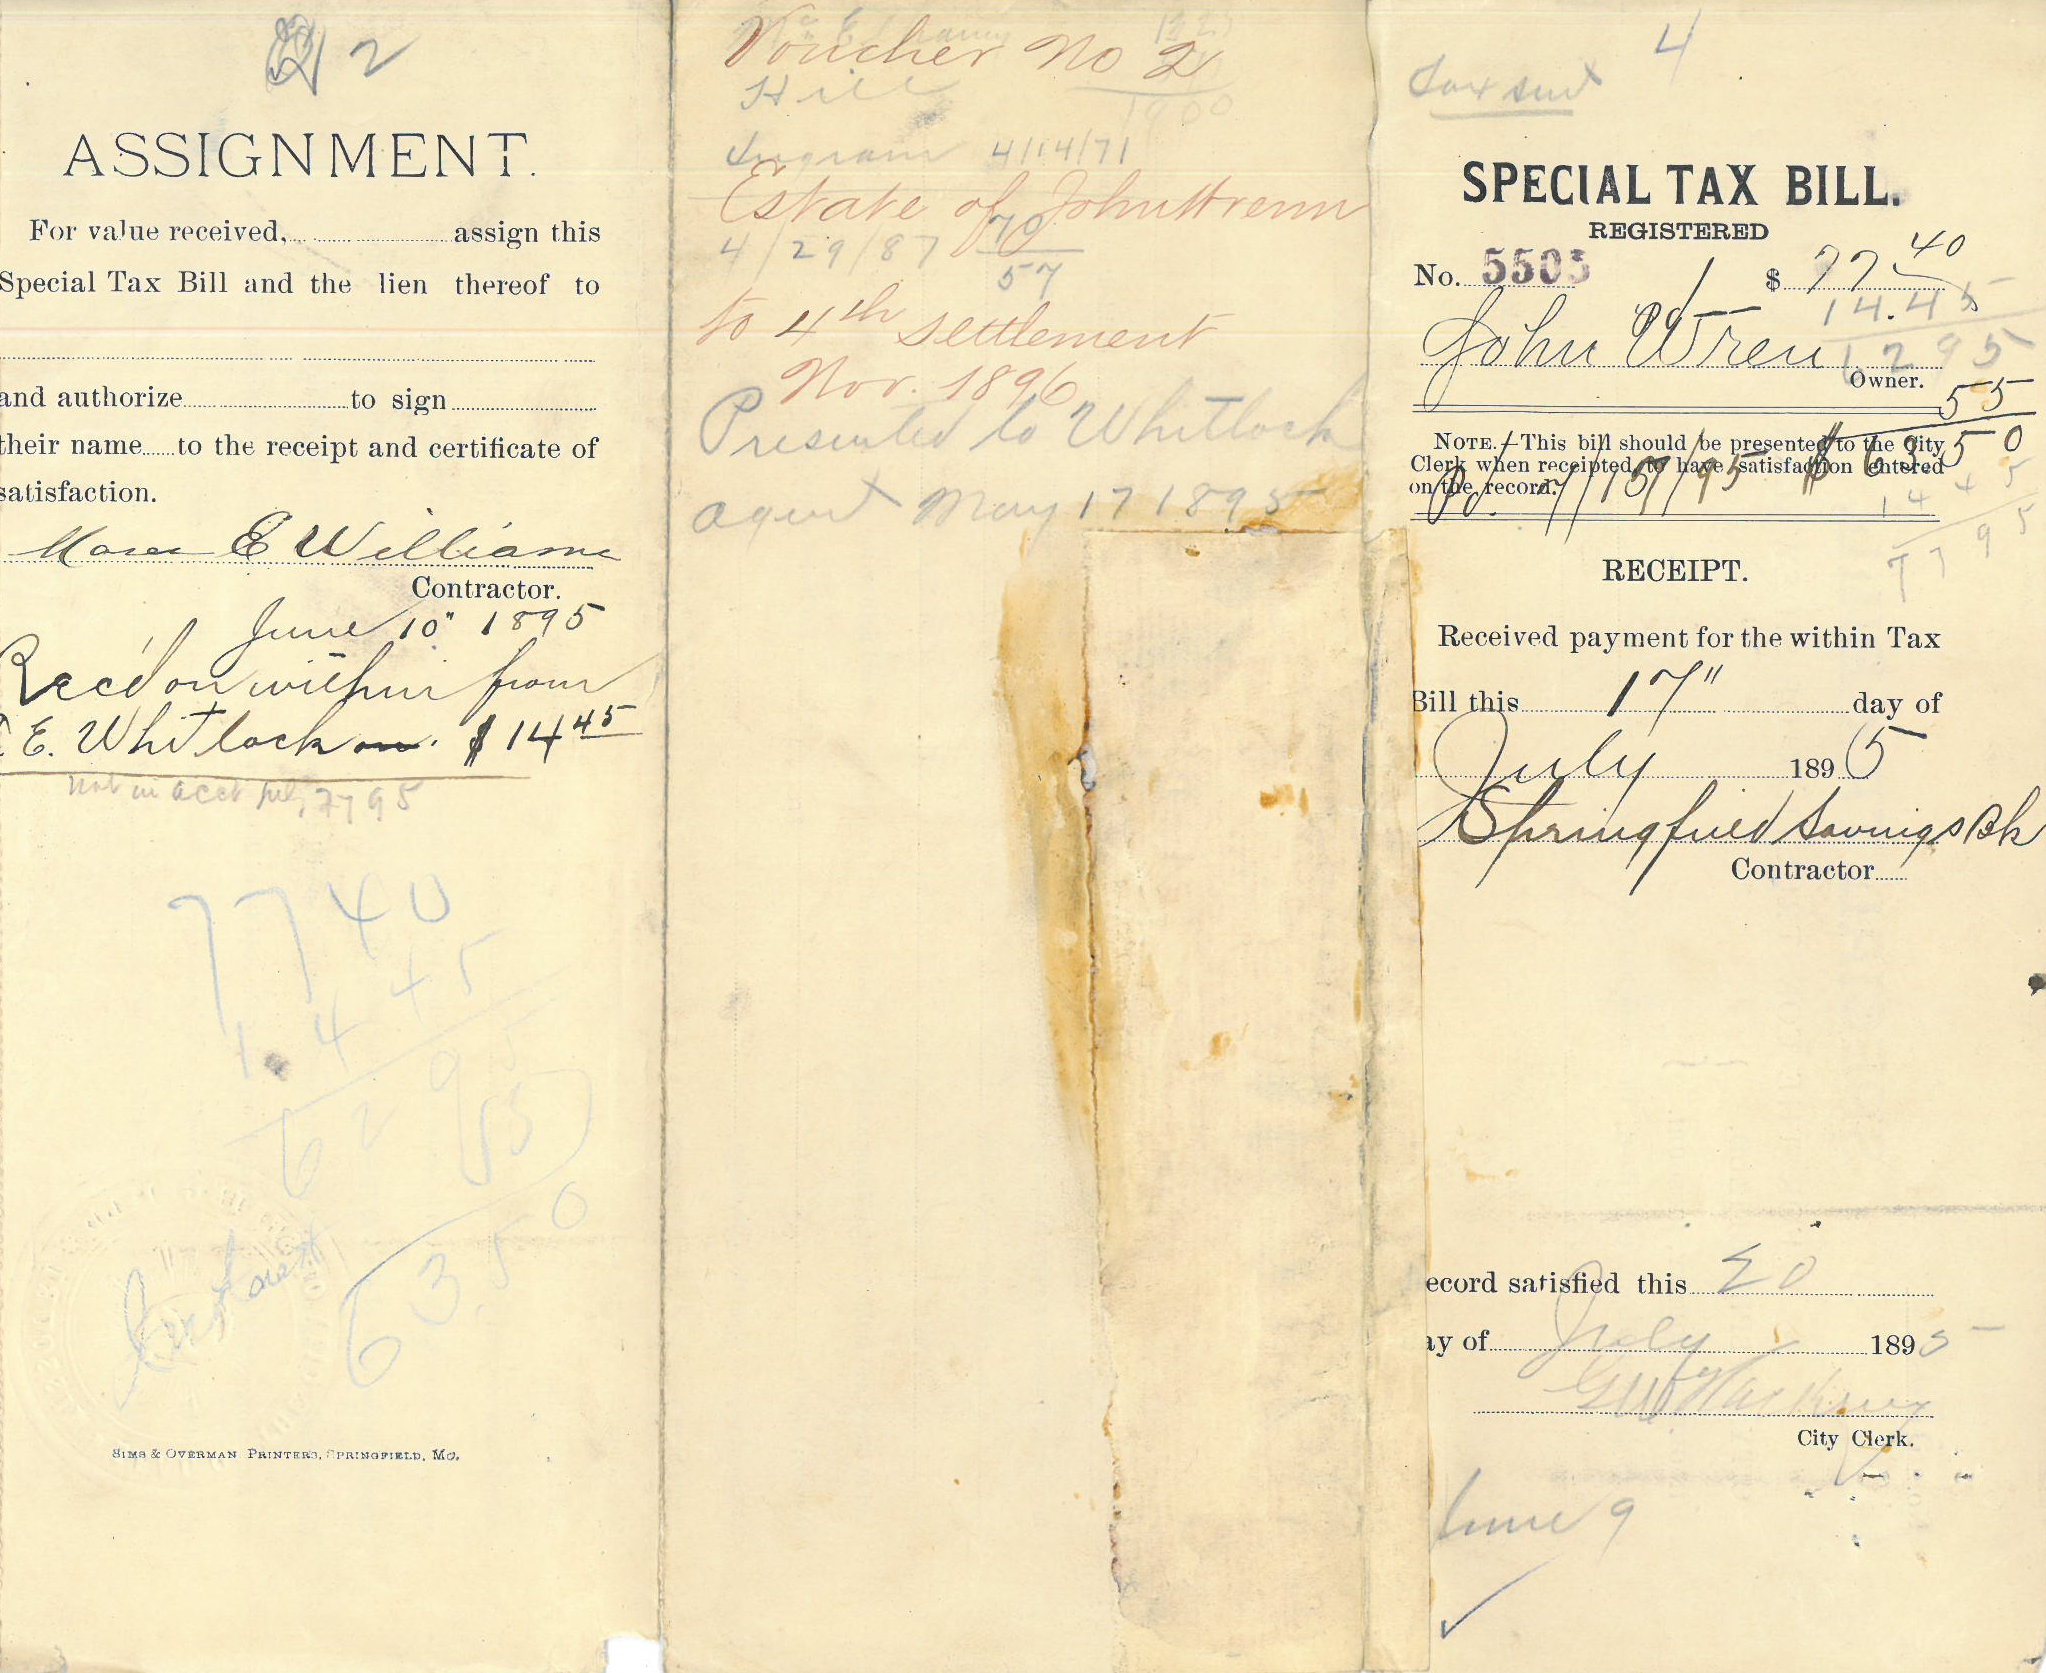 2
ASSIGNMENT.
For value received, assign this
Special Tax Bill and the lien thereof to
and authorize to sign
their name to the receipt and certificate of
satisfaction.
E Williams
Contractor.
June 10" 1895
Rec'd on within from
E. Whitlock $14 45
not in acct 7795
7740
14 45
62 95
55
63.50
SIMS & OVERMAN PRINTERS, SPRINGFIELD, MO.
Voucher No 2
Hill
1900
Ingram 4/14/71
Estate of John Wrenn
70
4/29/87
57
to 4th settlement
Nov. 1896
Presented to Whitlock
agent May 17 1895
4
Tax suit
SPECIAL TAX BILL.
REGISTERED
No. 5505 $ 77 40
14.45
John Wren 6295
Owner.
55
NOTE.—This bill should be presented to the City
$63.50
Clerk when receipted, to have satisfaction entered
on the record.
Pd. 7/17/95
14 45
77 95
RECEIPT.
Received payment for the within Tax
Bill this 17" day of
July 1895
Springfield Savings Bk
Contractor
ecord satisfied this 20
ay of July 1895
City Clerk.
June 9